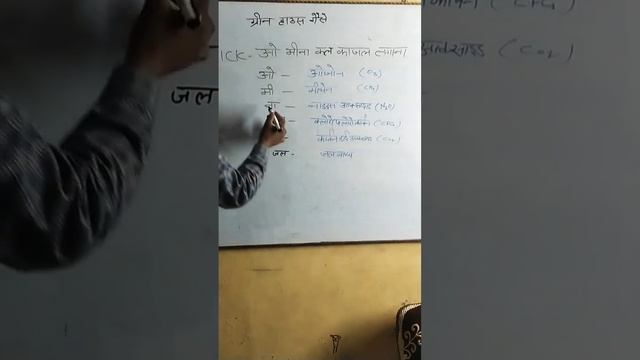 ग्रीन हाउस गैसे
ICK- ओ मीना क्ल काजल लगाना
ओ - ओजोन (O₃)
मी - मीथेन
ना - नाइट्रस ऑक्साइड (N₂O)
- क्लोरोफ्लोरोकार्बन (CFC)
- कार्बन डाई ऑक्साइड (CO₂)
जल - जलवाष्प